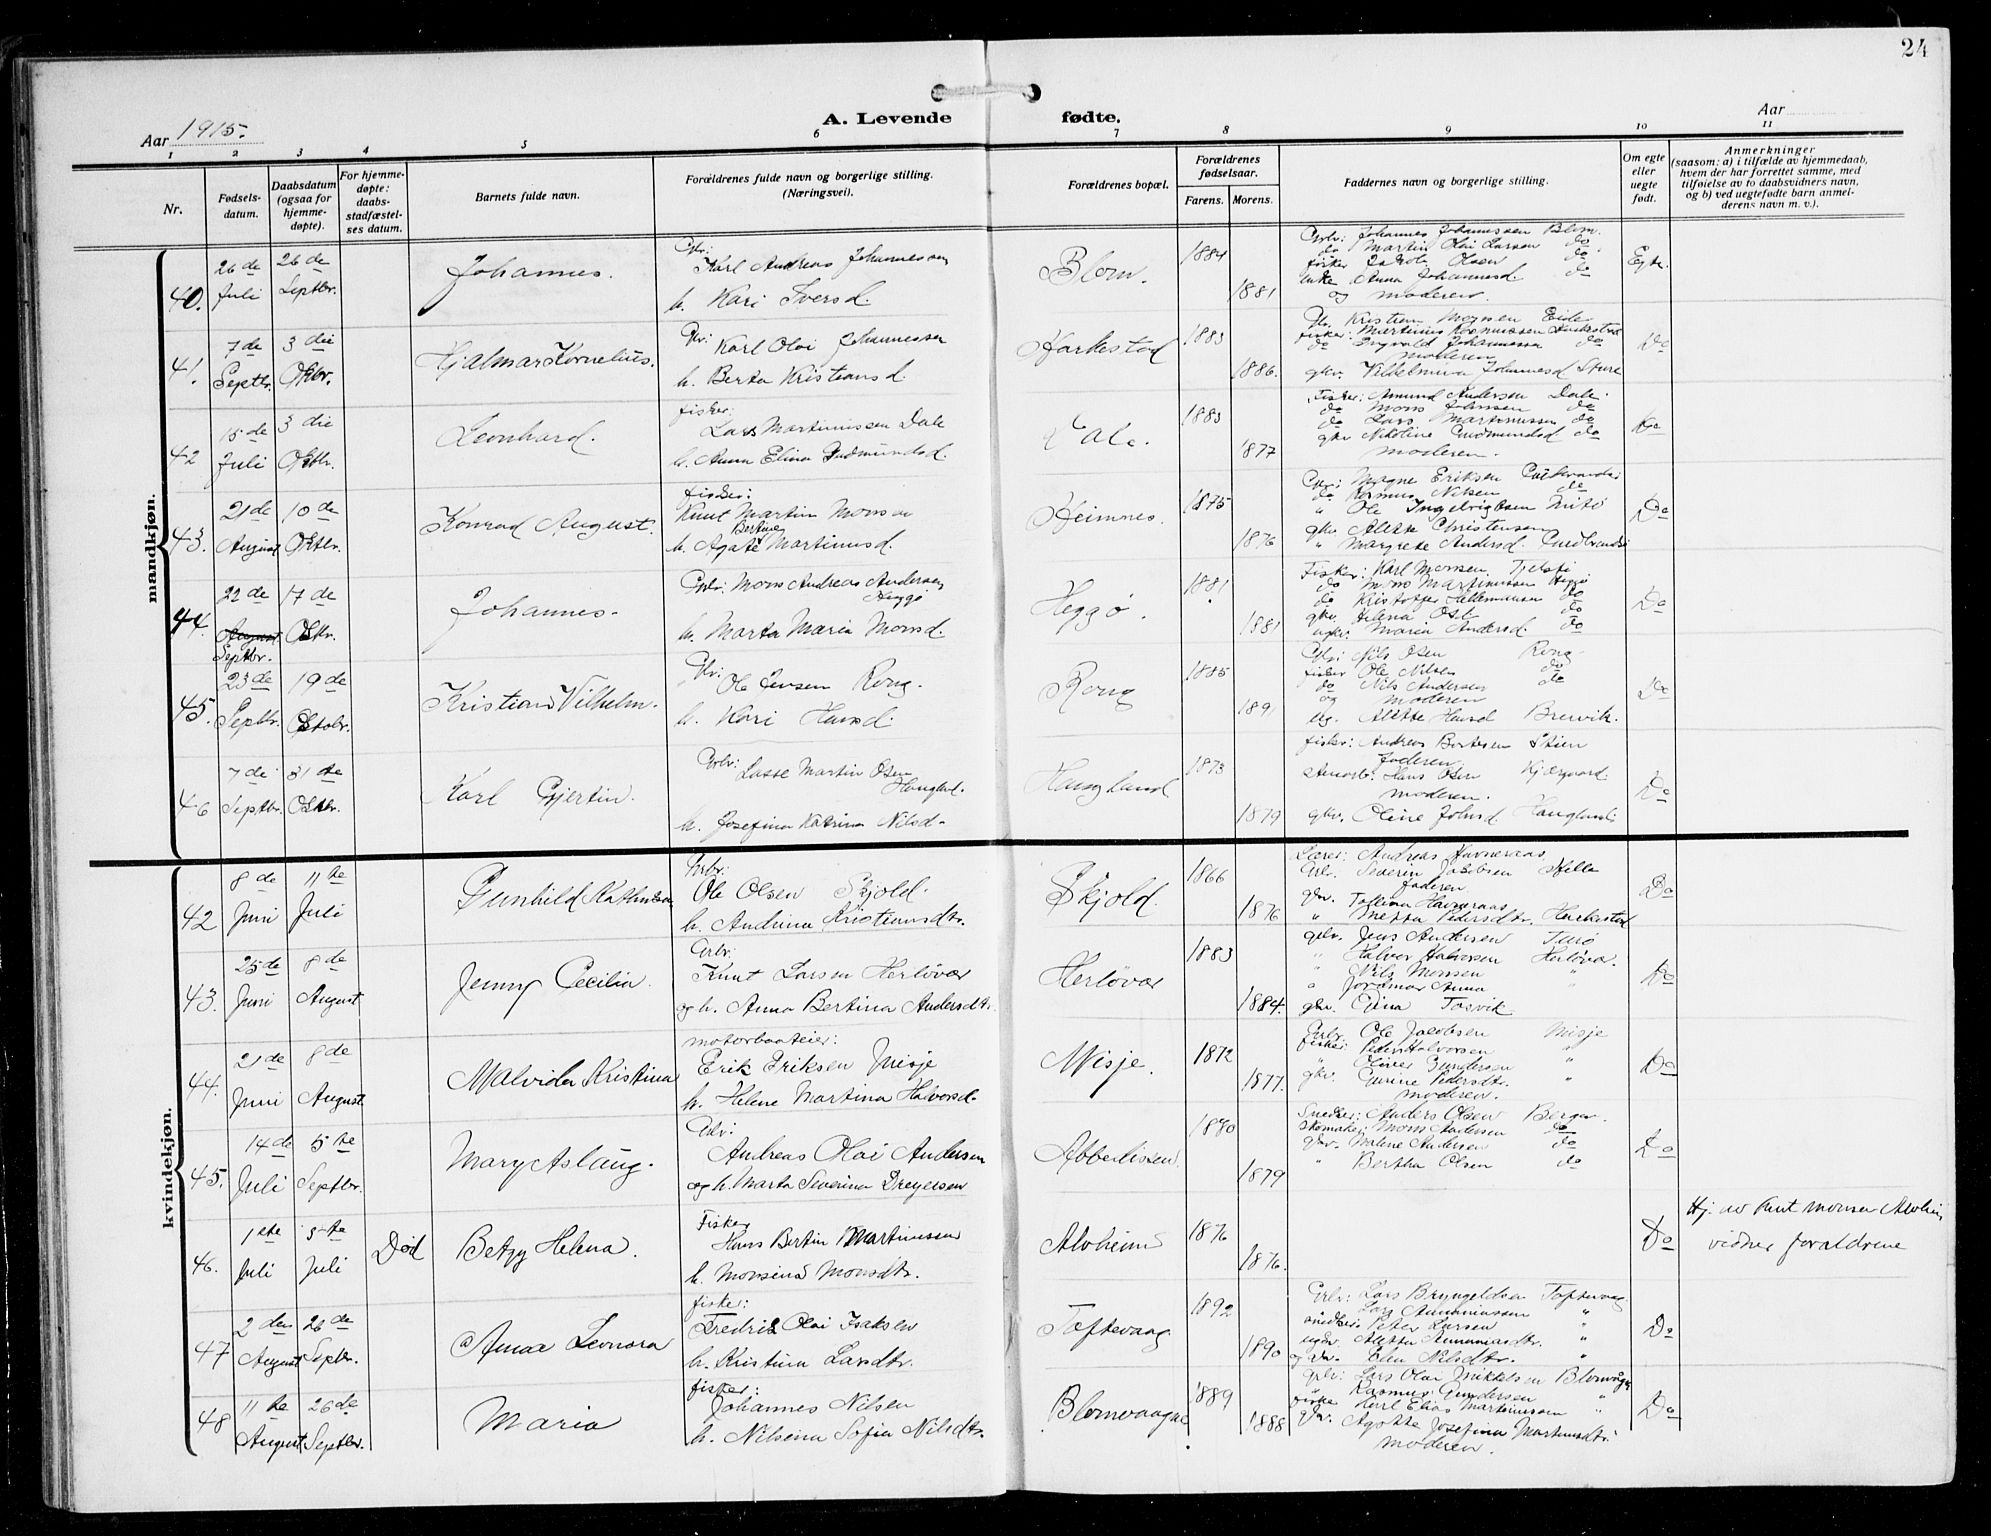 24
Aar 1915.
A. Levende fødte.
Aar
1 2 3 4 5 6 7 8 9 10 11
Nr.
Fødsels-
datum.
Daabsdatum
(ogsaa for
hjemme-
døpte).
For hjemme-
døpte:
daabs-
stadfæstel-
ses datum.
Barnets fulde navn.
Forældrenes fulde navn og borgerlige stilling.
(Næringsvei).
Forældrenes bopæl.
Forældrenes
fødselsaar.
Farens. Morens.
Faddernes navn og borgerlige stilling.
Om egte
eller
uegte
født.
Anmerkninger
(saasom: a) i tilfælde av hjemmedaab,
hvem der har forrettet samme, med
tilføielse av to daabsvidners navn,
og b) ved uegtefødte barn anmel-
derens navn m. v.).
mandkjøn.
40.
26de
Juli
26de
Septbr.
Johannes.
Gbr:
Karl Andreas Johannessen
h. Kari Iversd.
Blom.
1884
1881
Grbr: Johannes Johannessen Blom.
do Martin Olai Larsen do
fisker Jakob Olsen do
enke Anna Johannesd. do
og moderen.
Egte.
41.
7de
Septbr.
3die
Oktbr.
Hjalmar Kornelius.
Gbr:
Karl Olai Johannessen
h. Berta Kristiansd.
Harkestad
1883
1886.
Gbr. Kristian Monsen Eide
fisker: Martinus Rasmussen Harkestad
do Ingvald Johannessen do
moderen
gkv. Vilhelmina Johannesd Sture
Do
42
15de
Juli
3die
Oktbr.
Leonhard.
fisker:
Lars Martinussen Dale
h. Anna Elina Gudmundsd.
Dale.
1883
1877
Fisker: Amund Andersen Dale.
do Mons Johnsen do
do Lars Martinussen do
gkv Nikoline Gudmundsd do
moderen.
Do
43.
21de
August
10de
Oktbr.
Konrad August.
fisker:
Knut Martin Monsen
Bertine
h. Agate Martinusd.
Heimnes.
1875
1876
Gbr: Magne Eriksen
do Rasmus Nilsen do
" Ole Ingebrigtsen
gkv Alette Christensen
" Margrete Andersd.
Do
44.
22de
August
Septbr.
17de
Oktbr.
Johannes.
Grbr: Mons Andreas Andersen
Heggø
h. Marta Maria Monsd.
Heggø
1881
1881
Fisker: Karl Monsen
do Mons Martinussen Heggø
do Kristoffer do
gkv. Helena do
ugkv. Maria Andersd. do
Do
45.
23de
Septbr.
19de
Oktobr.
Kristian Vilhelm.
Gbr:
Ole Jensen Rong.
h. Kari Hansd.
Rong
1885
1891
Gbr: Nils Olsen Rong
fisker Ole Nilsen do
do Nils Andersen do
og moderen
ug. Alette Hansd Breivik.
Do
46
7de
Septbr.
31te
Oktbr.
Karl Gjertin.
Grbr:
Lasse Martin Olsen
Haugland.
h. Josefina Katrina Nilsd.
Haugland
1873
1879
fisker: Andreas Bertesen
faderen.
Hans Olsen Kjærgaard.
moderen.
gkv. Oline Johnsd Haugland
Do
kvindekjøn.
42
8de
Juni
11te
Juli
Gunhild Kathinka
Grbr.
Ole Olsen Skjold.
h. Andrina Kristiansdtr.
Skjold.
1866
1876
Lærer: Andreas Havneraas
Grbr. Severin Jacobsen Hella
faderen.
gkv. Havneraas
" Metta Pedersdtr. Harkestad
Do
43.
25de
Juni
8de
August
Jenny Cecilia.
Grbr.
Knut Larsen Herløvær
og h. Anna Bertina Andersdtr.
Herløvær
1883
1884.
grbr. Jens Andersen Turø
" Halvor Halvorsen Herløvær.
" Nils Monsen "
" Jordmor Anna "
gkv. Gina
Do
44.
21de
Juni
8de
August
Malvida Kristina
motorbaateier:
Erik Eriksen Misje
h. Helene Martina Halvorsd.
Misje.
1872
1877.
Grbr Ole Jacobsen Misje
fisker: Peder Halvorsen "
" Oliver Gundersen "
gkv. Gurine Pedersdtr. "
moderen.
Do
45.
14de
Juli
5te
Septbr.
Mary Aslaug.
Grbr:
Andreas Olai Andersen
og h. Marta Severina Dreyersen
Abbedissen.
1880
1879
Snedker: Anders Olsen Bergen.
Skomaker: Mons Andersen do
gkv. Malene Andersen do
" Bertha Olsen do
Do
46.
1ste
Juli
5te
Juli
Død
Betzy Helena.
Fisker
Hans Bertin Martinussen
h. Monsina Monsdtr.
Alvheim
1876
1876.
Do
Hj. av Knut Monsen Alvheim
vidner forældrene
47
2den
August
26de
Septbr.
Anna Leonora
fisker:
Fredrik Olai Isaksen
h. Kristina Larsdtr.
Toftevaag.
1892
1890
Grbr: Lars Bryngeldsen Toftevaag
Lars "
snedker Peter Larsen "
ugkv. Aletta "
og gkv. Elen Nilsdtr. "
Do
48
11te
August
26de
Septbr.
Maria
fisker:
Johannes Nilsen
h. Nilsina Sofia Nilsdtr.
Blomvaagne
1889
1888
Grbr: Lars Olai Mikkelsen Blomvåg
" Rasmus Gundersen "
fisker Karl Elias Martinussen "
gkv. Agotte Josefina Martinusdtr.
moderen.
Do